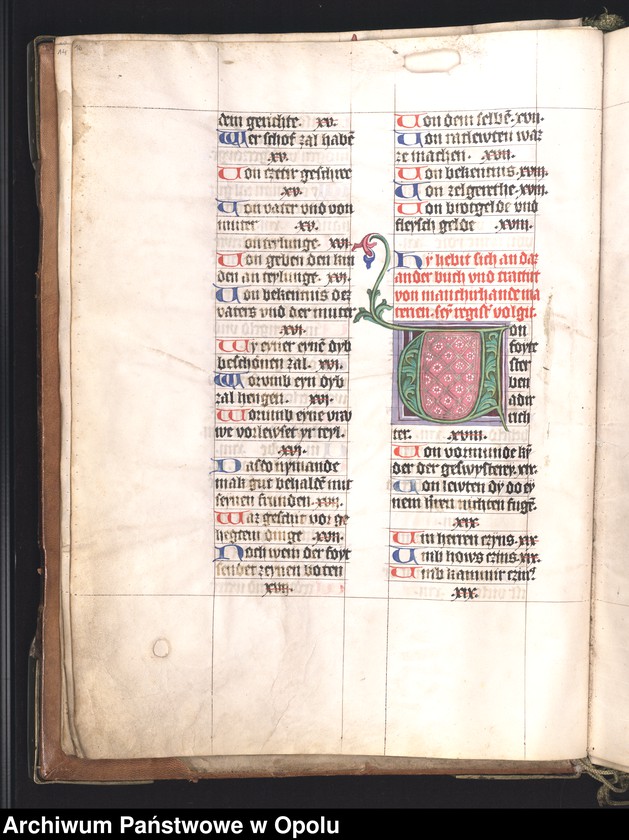 14
dem gerichte. xv.
Wer schos zal habē
xv.
Von erer geschee
xv.
Von vater vnd von
muter xv.
on teylunge xvi.
Von geben den kin
den an teylunge. xvi.
Von bekentnis des
vaters vnd der muter
xvi.
Wy eyner eynē dyb
beschonen zal. xvi.
Worumb eyn dyb
zal hengen. xvi.
Worumb eyne vrow
we vorlewset yr teyl.
xvi.
Daseo nymande
mak gut behaldē mit
seynen frunden. xvii.
Was geschit vor ge
hegtem dinge xvii.
Noch wem der foyt
sendet zeynen boten
xvii.
Von dem selbē. xvii.
Von ratlewten war
ze machen. xvii.
Von bekentnis. xviii.
Von zelgerethe. xviii.
Von brotgelde vnd
fleysch gelde xviii.
Hy hebit sich an das
ander buch vnd tractat
von manchirhande ma
terien. seȳ regist' volgit.
Von
foyte
ster
ben
adir
rich
ter. xviii.
Von vormunde kȳ
der der geswystery. xix.
Von lewten dy do ey
nem hren richten fugē.
xix.
Um herren czyns. xix
Umb hows czins. xix.
Umb kammir czins
xix.
Archiwum Państwowe w Opolu